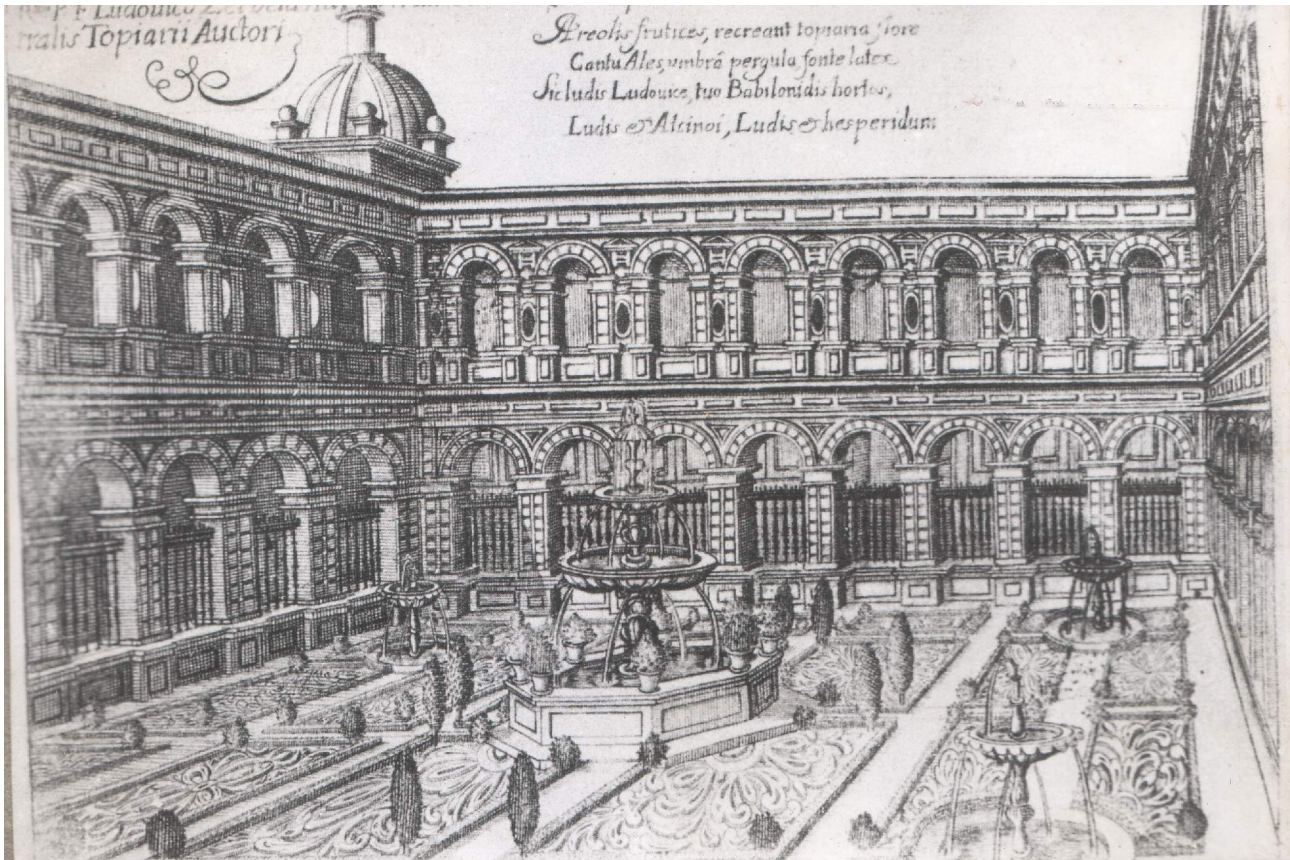 P F Ludouico
tralis Topiarii Auctori
Areolis frutices, recreant topiaria flore
Cantu Ales, umbrâ pergula fonte latex
Sic ludis Ludouice, tuo Babilonidis hortos,
Ludis & Alcinoi, Ludis & hesperidum